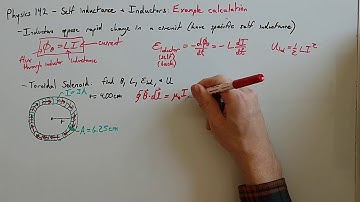 Physics 142 - Self inductance + Inductors: Example calculation
- Inductors oppose rapid change in a circuit (have specific self inductance)
Φ_B = LI ← current
flux through inductor
inductance
ℰ_inductor (self) (back) = -dΦ_B/dt = -L dI/dt
U_L = ½ L I²
- Toroidal Solenoid: find B, L, ℰ_ind, + U
I = 1A
r = 4.00cm
∮B⃗·dl⃗ = μ₀I
r
A = 6.25cm